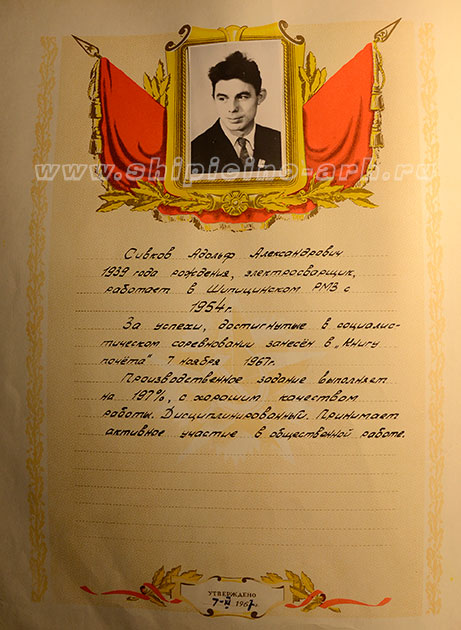 www.shipicino-arh.ru
Сивков Адольф Александрович
1939 года рождения, электросварщик,
работает в Шипицинском РМЗ с
1954г.
За успехи, достигнутые в социалис-
тическом соревновании занесён в „Книгу
почёта" 7 ноября 1967г.
Производственное задание выполняет
на 197%, с хорошим качеством
работы. Дисциплинированный. Принимает
активное участие в общественной работе.
УТВЕРЖДЕНО
7-XI 1967г.